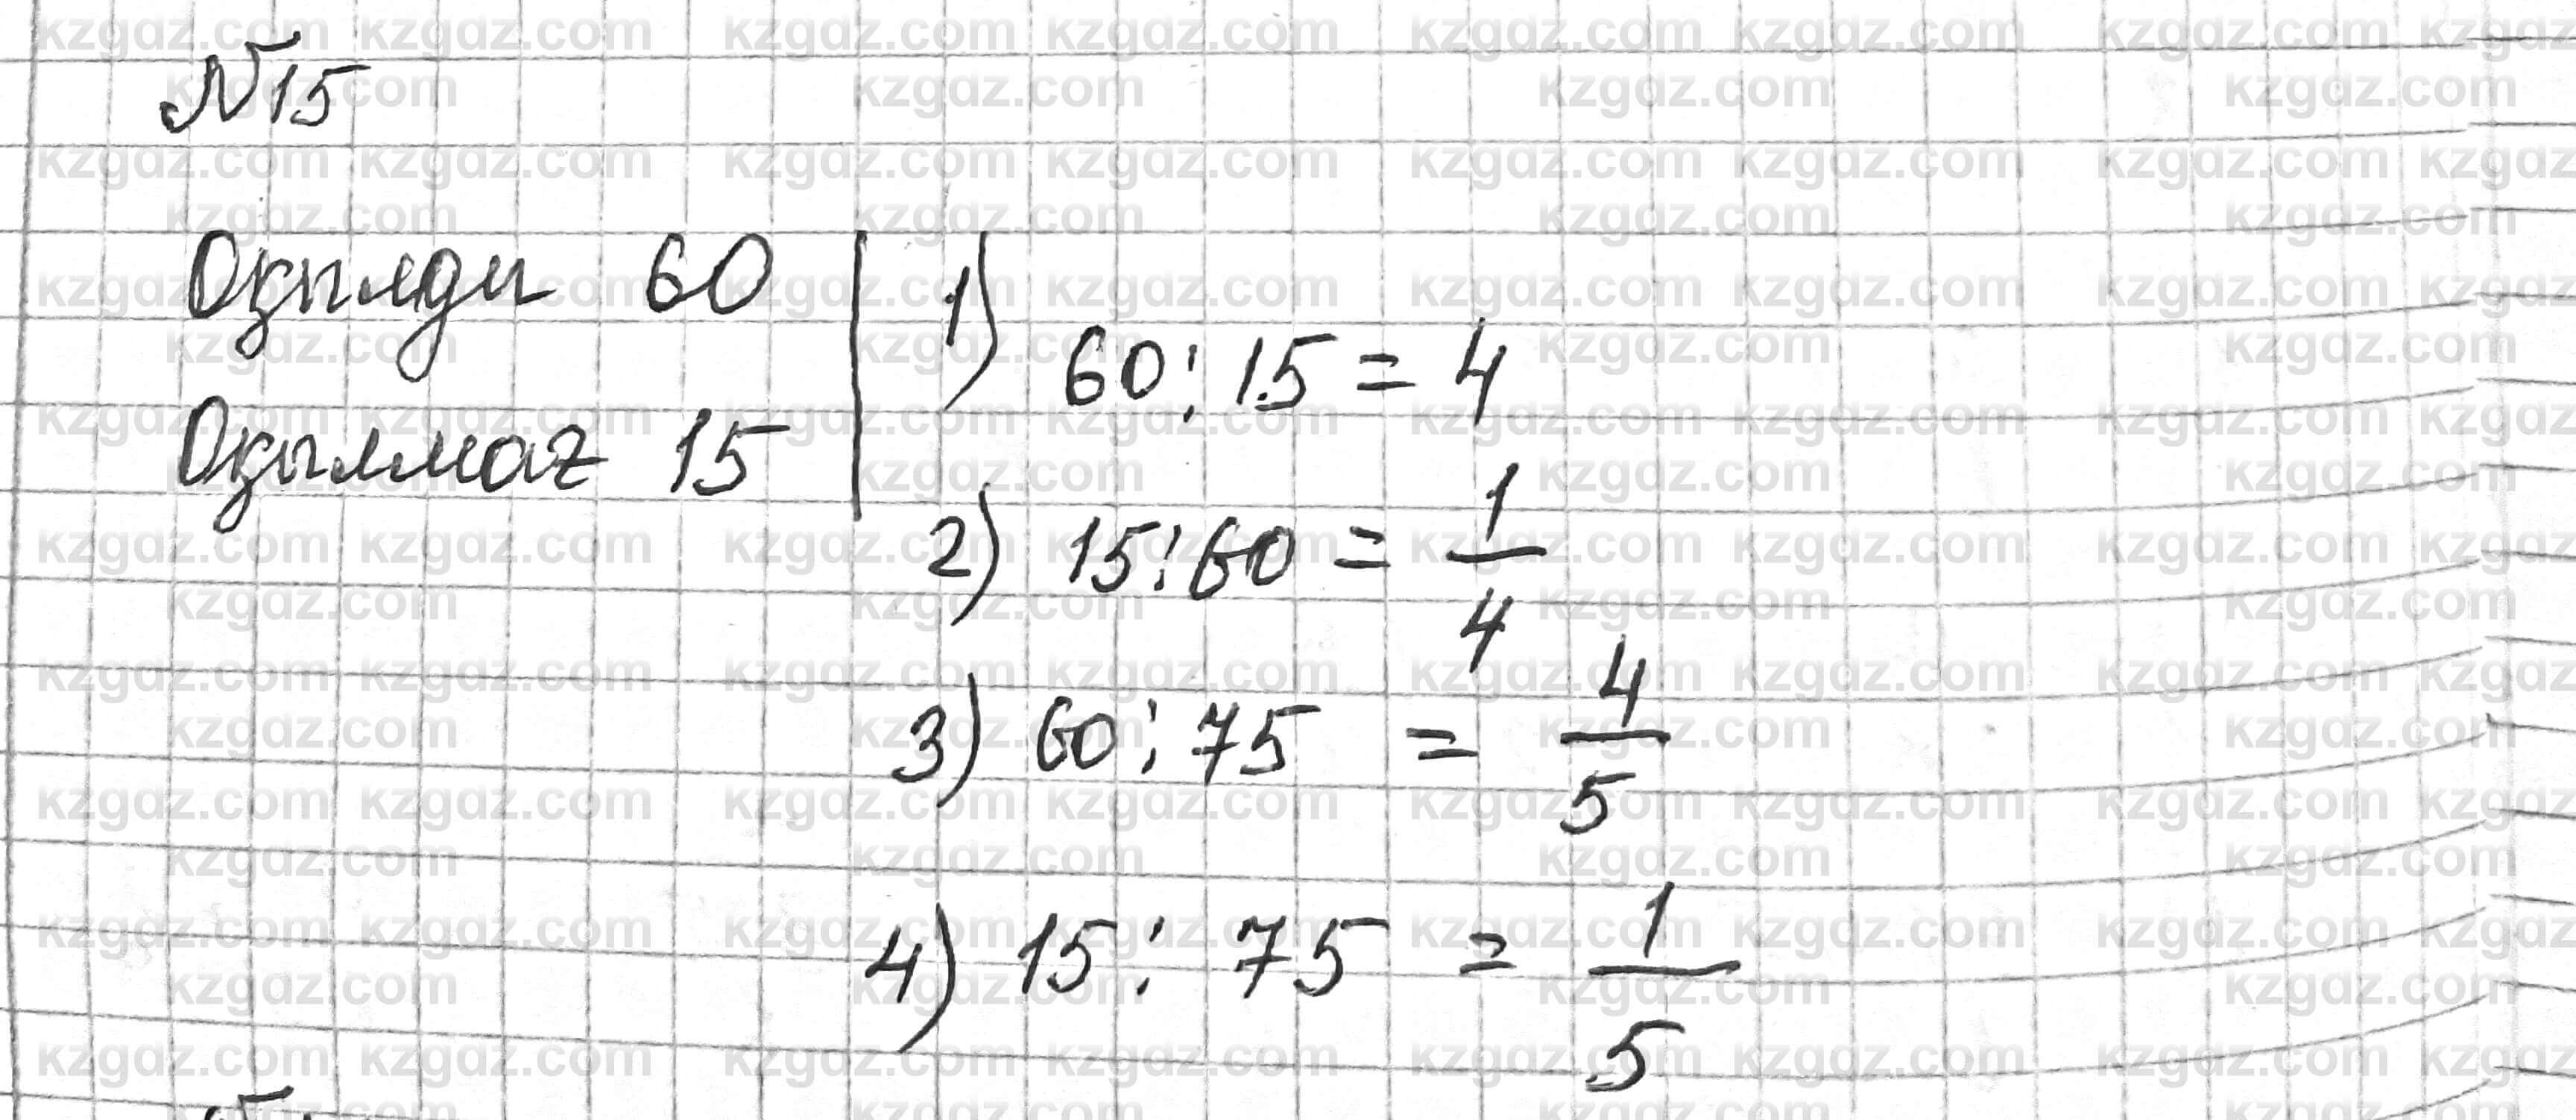 №15
Оқылды 60
Оқылмаг 15
1) 60 : 15 = 4
2) 15 : 60 = 1/4
3) 60 : 75 = 4/5
4) 15 : 75 = 1/5